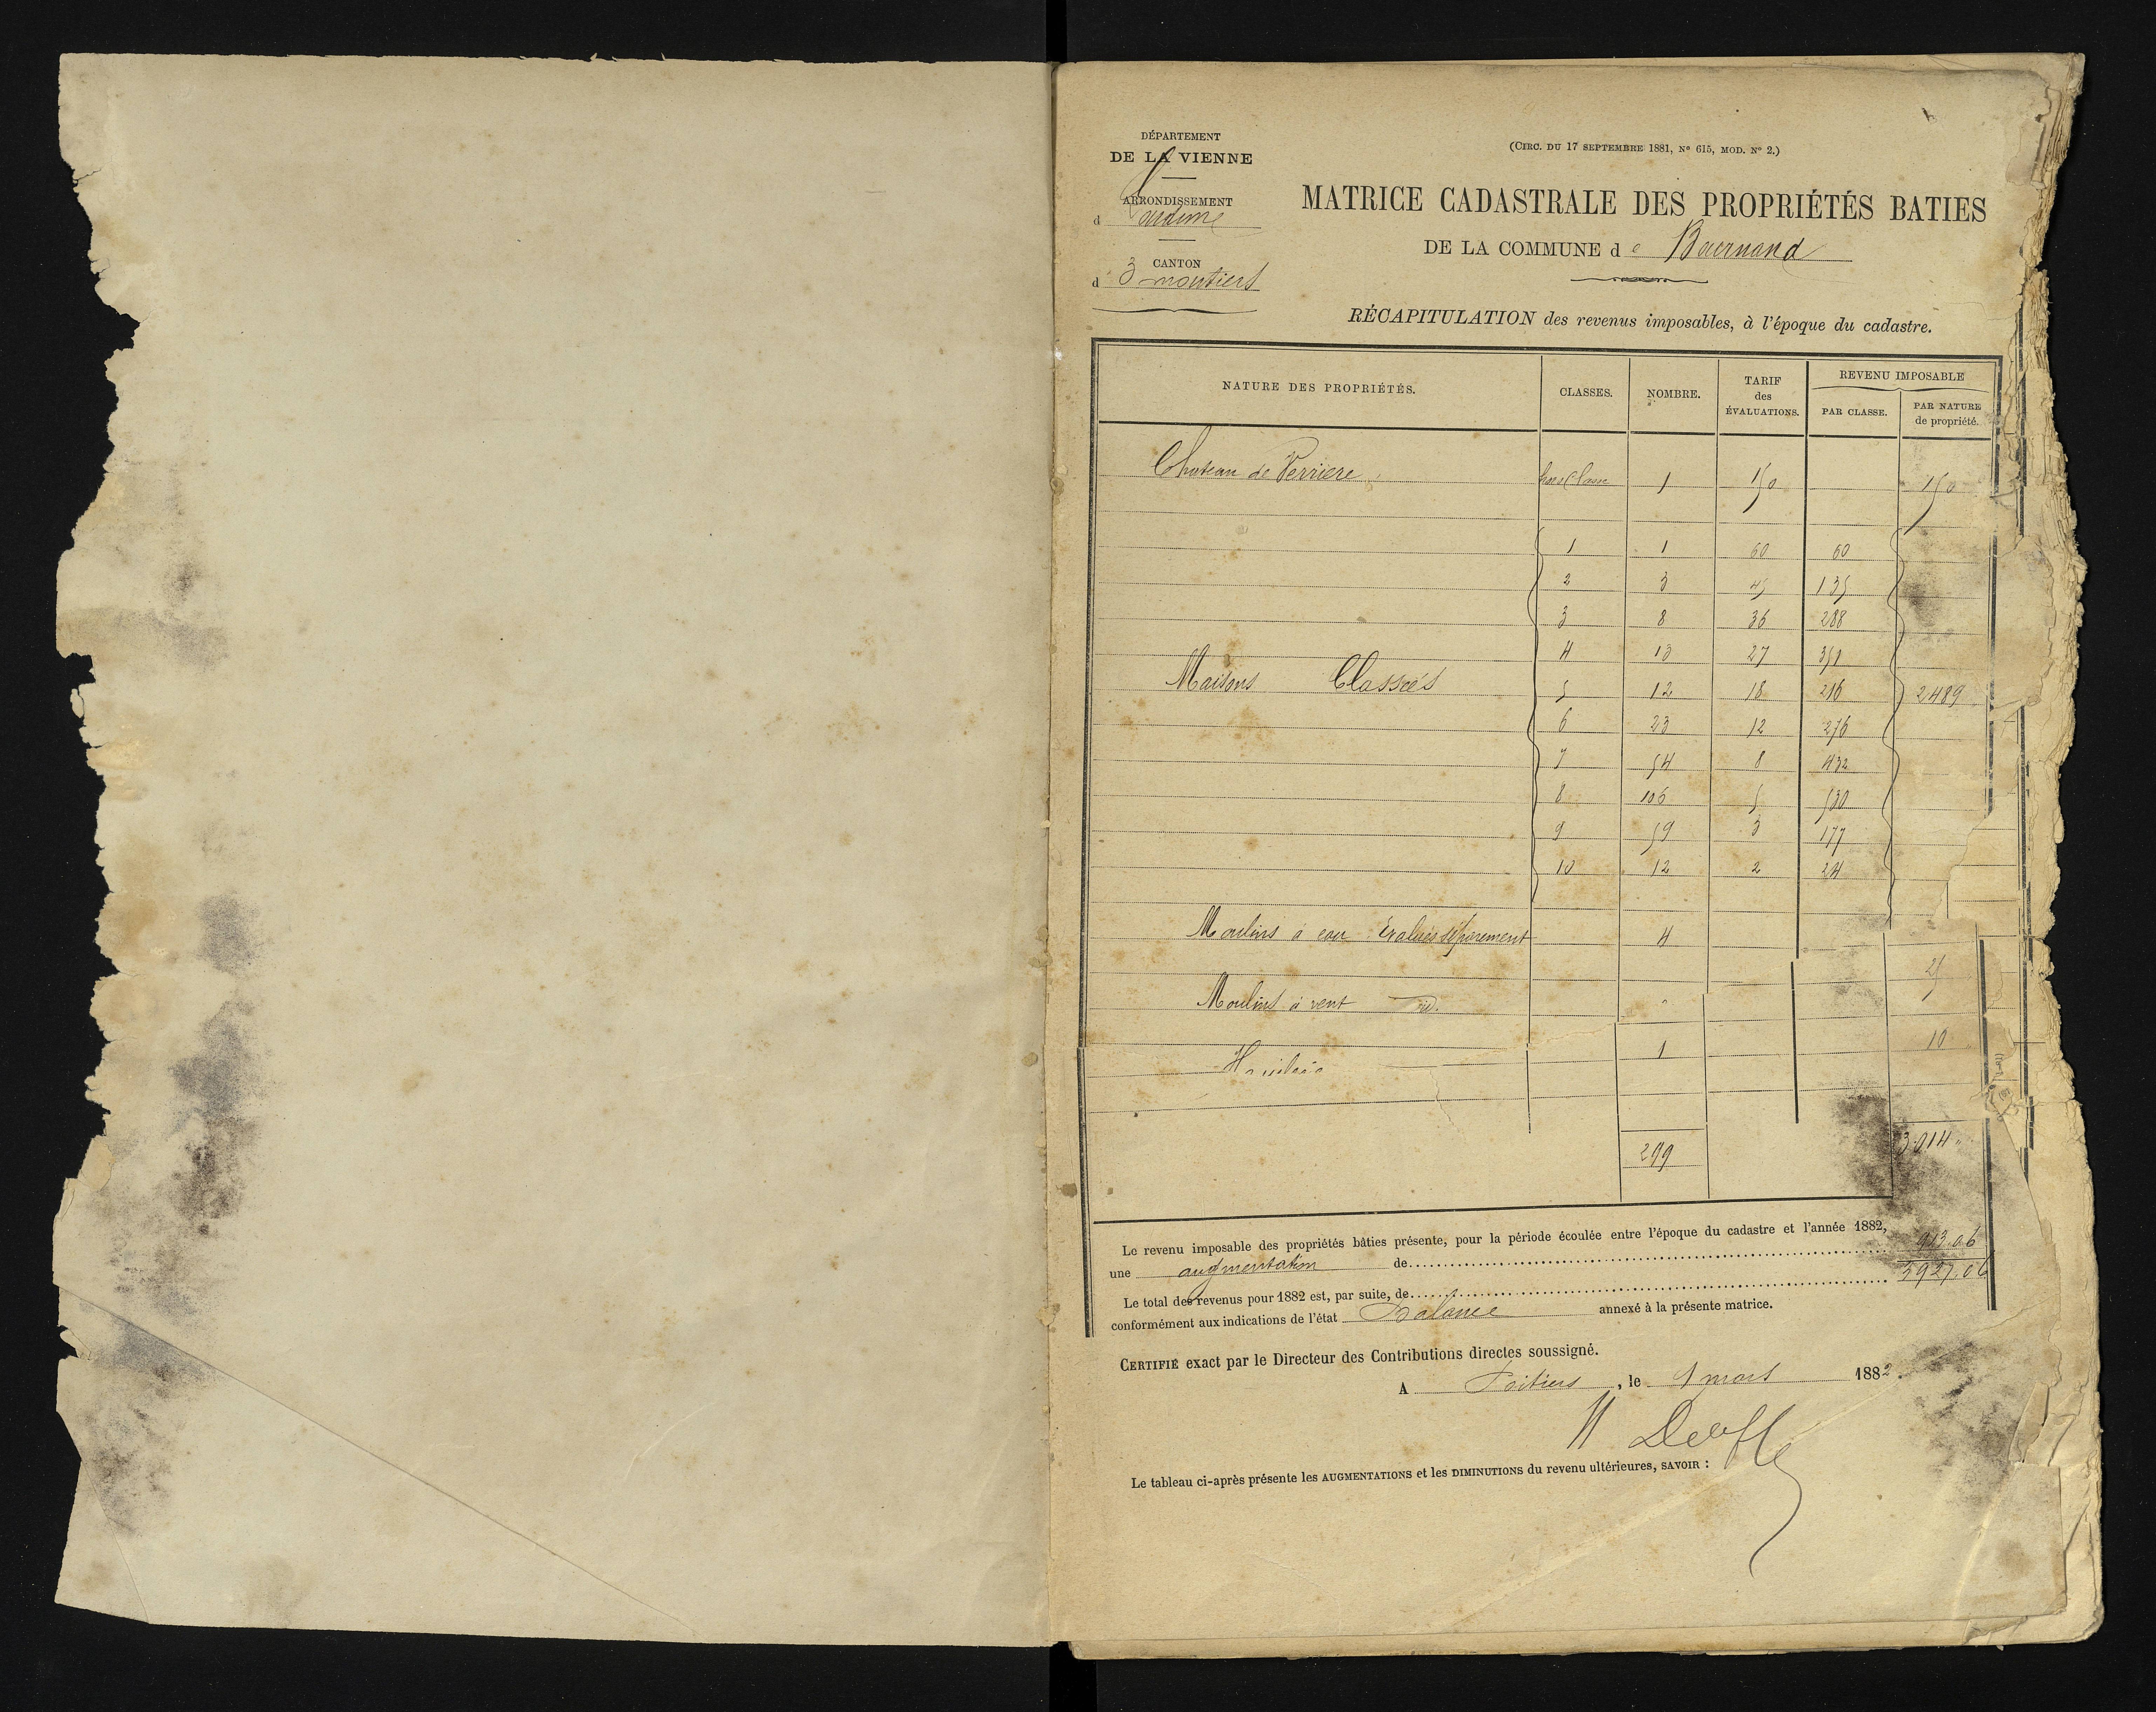 DÉPARTEMENT
DE LA VIENNE
ARRONDISSEMENT
d Loudun
CANTON
d 3 moutiers
(CIRC. DU 17 SEPTEMBRE 1881, No 615, MOD. No 2.)
MATRICE CADASTRALE DES PROPRIÉTÉS BATIES
DE LA COMMUNE de
RÉCAPITULATION des revenus imposables, à l'époque du cadastre.
NATURE DES PROPRIÉTÉS. CLASSES. NOMBRE. TARIF des ÉVALUATIONS. REVENU IMPOSABLE PAR CLASSE. PAR NATURE de propriété.
Chateau de Verriere hors Classe 1 150 150
1 1 60 60
2 3 45 135
3 8 36 288
4 13 27 351
Maisons Classées 5 12 18 216 2489
6 23 12 276
7 54 8 432
8 106 5 530
9 59 3 177
10 12 2 24
Moulins à eau Evalués séparement 4
Moulins à vent id. 25
1 10
299 3.014 "
Le revenu imposable des propriétés bâties présente, pour la période écoulée entre l'époque du cadastre et l'année 1882,
une augmentation de 913.06
Le total des revenus pour 1882 est, par suite, de 3927.06
conformément aux indications de l'état Balance annexé à la présente matrice.
CERTIFIÉ exact par le Directeur des Contributions directes soussigné.
A Poitiers, le 1 mars 1882.
Le tableau ci-après présente les AUGMENTATIONS et les DIMINUTIONS du revenu ultérieures, SAVOIR :